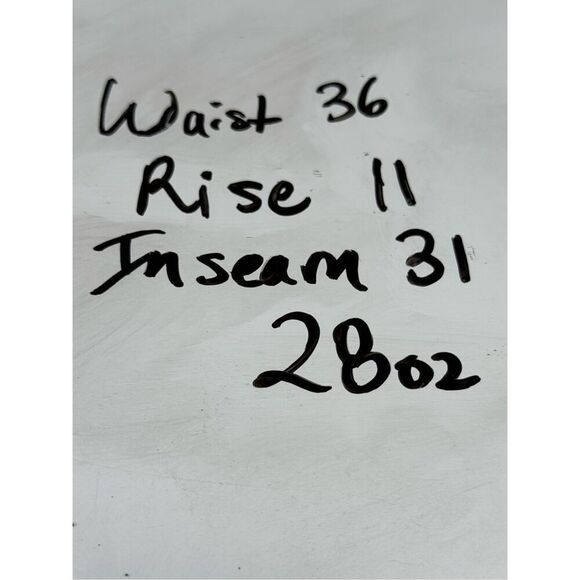 Waist 36
Rise 11
Inseam 31
28oz